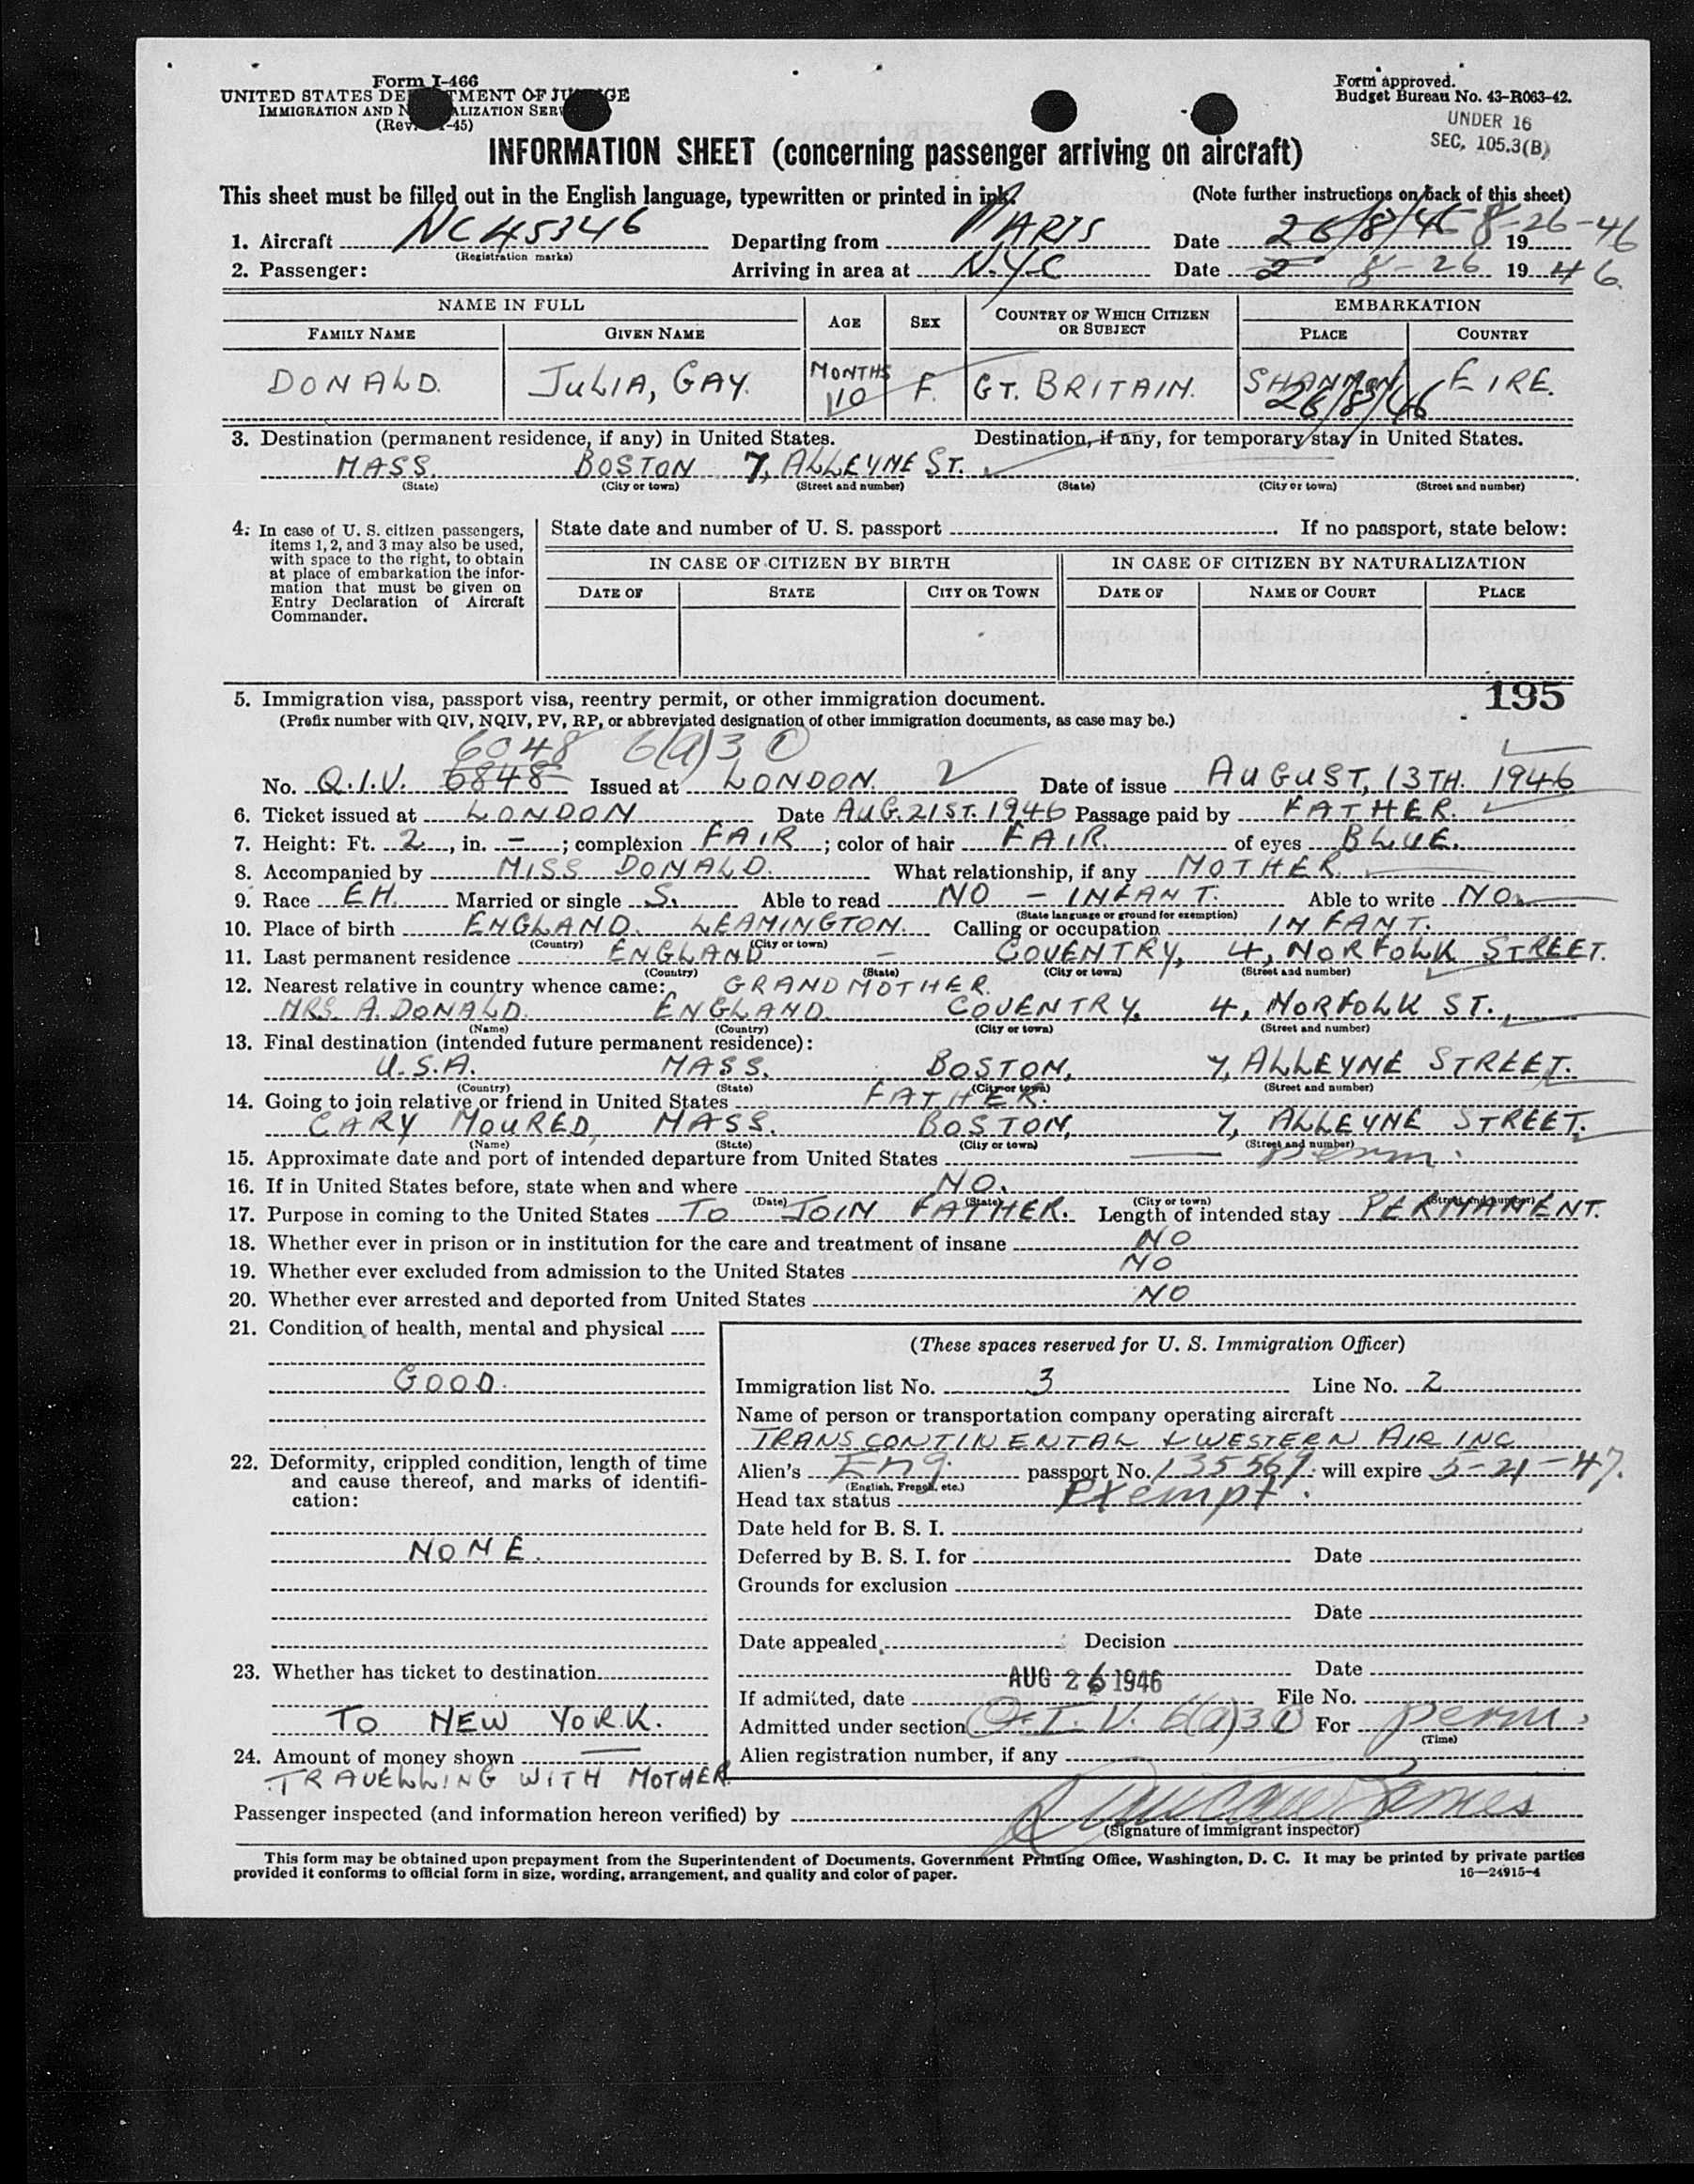 Form I-466
UNITED STATES DE TMENT OF JU GE
IMMIGRATION AND N ALIZATION SER
(Rev. -45)
Form approved.
Budget Bureau No. 43-R063-42.
UNDER 16
SEC, 105.3(B)
INFORMATION SHEET (concerning passenger arriving on aircraft)
This sheet must be filled out in the English language, typewritten or printed in ink. (Note further instructions on back of this sheet)
1. Aircraft NC45346 Departing from PARIS Date 26/8/46 8-26-46 19
(Registration marks)
2. Passenger: Arriving in area at N.Y.C Date 2 8-26 19 46
NAME IN FULL AGE SEX COUNTRY OF WHICH CITIZEN OR SUBJECT EMBARKATION
FAMILY NAME GIVEN NAME PLACE COUNTRY
DONALD. JULIA, GAY. MONTHS 10 F. GT. BRITAIN. SHANNON EIRE.
26/8/46
3. Destination (permanent residence, if any) in United States. Destination, if any, for temporary stay in United States.
MASS. BOSTON 7, ALLEYNE ST.
(State) (City or town) (Street and number) (State) (City or town) (Street and number)
4. In case of U. S. citizen passengers, items 1, 2, and 3 may also be used, with space to the right, to obtain at place of embarkation the information that must be given on Entry Declaration of Aircraft Commander.
State date and number of U. S. passport If no passport, state below:
IN CASE OF CITIZEN BY BIRTH IN CASE OF CITIZEN BY NATURALIZATION
DATE OF STATE CITY OR TOWN DATE OF NAME OF COURT PLACE
195
5. Immigration visa, passport visa, reentry permit, or other immigration document.
(Prefix number with QIV, NQIV, PV, RP, or abbreviated designation of other immigration documents, as case may be.)
6048 6(a)3 ①
No. Q.I.V. 6848 Issued at LONDON. 2 Date of issue AUGUST, 13TH. 1946
6. Ticket issued at LONDON Date AUG. 21ST. 1946 Passage paid by FATHER.
7. Height: Ft. 2, in. –; complexion FAIR; color of hair FAIR. of eyes BLUE.
8. Accompanied by MISS DONALD. What relationship, if any MOTHER
9. Race EH. Married or single S. Able to read NO - INFANT. Able to write NO
(State language or ground for exemption)
10. Place of birth ENGLAND. LEAMINGTON. Calling or occupation INFANT.
(Country) (City or town)
11. Last permanent residence ENGLAND – COVENTRY, 4, NORFOLK STREET.
(Country) (State) (City or town) (Street and number)
12. Nearest relative in country whence came: GRANDMOTHER.
MRS. A. DONALD. ENGLAND. COVENTRY. 4, NORFOLK ST.,
(Name) (Country) (City or town) (Street and number)
13. Final destination (intended future permanent residence):
U.S.A. MASS. BOSTON, 7, ALLEYNE STREET.
(Country) (State) (City or town) (Street and number)
14. Going to join relative or friend in United States FATHER.
CARY MOURED, MASS. BOSTON, 7, ALLEYNE STREET.
(Name) (State) (City or town) (Street and number)
15. Approximate date and port of intended departure from United States — perm.
16. If in United States before, state when and where NO.
(Date) (State) (City or town) (Street and number)
17. Purpose in coming to the United States TO JOIN FATHER. Length of intended stay PERMANENT.
18. Whether ever in prison or in institution for the care and treatment of insane NO
19. Whether ever excluded from admission to the United States NO
20. Whether ever arrested and deported from United States NO
21. Condition of health, mental and physical
GOOD.
22. Deformity, crippled condition, length of time and cause thereof, and marks of identification:
NONE.
23. Whether has ticket to destination
TO NEW YORK.
24. Amount of money shown —
TRAVELLING WITH MOTHER.
(These spaces reserved for U. S. Immigration Officer)
Immigration list No. 3 Line No. 2
Name of person or transportation company operating aircraft
TRANSCONTINENTAL & WESTERN AIR INC
Alien's Eng. passport No. 135569 will expire 5-21-47.
(English, French, etc.)
Head tax status Exempt.
Date held for B. S. I.
Deferred by B. S. I. for Date
Grounds for exclusion
Date
Date appealed Decision
Date
If admitted, date AUG 26 1946 File No.
Admitted under section Q.I.V. 6(a)3 ① For perm.
(Time)
Alien registration number, if any
Passenger inspected (and information hereon verified) by
(Signature of immigrant inspector)
This form may be obtained upon prepayment from the Superintendent of Documents, Government Printing Office, Washington, D. C. It may be printed by private parties
provided it conforms to official form in size, wording, arrangement, and quality and color of paper. 16—24915-4